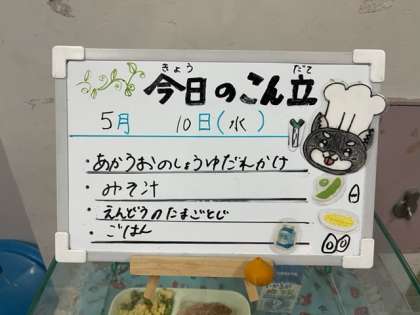 きょう だて
今日のこん立
5月 10日(水)
・あかうおのしょうゆだれかけ
・みそ汁
・えんどうのたまごとじ
・ごはん